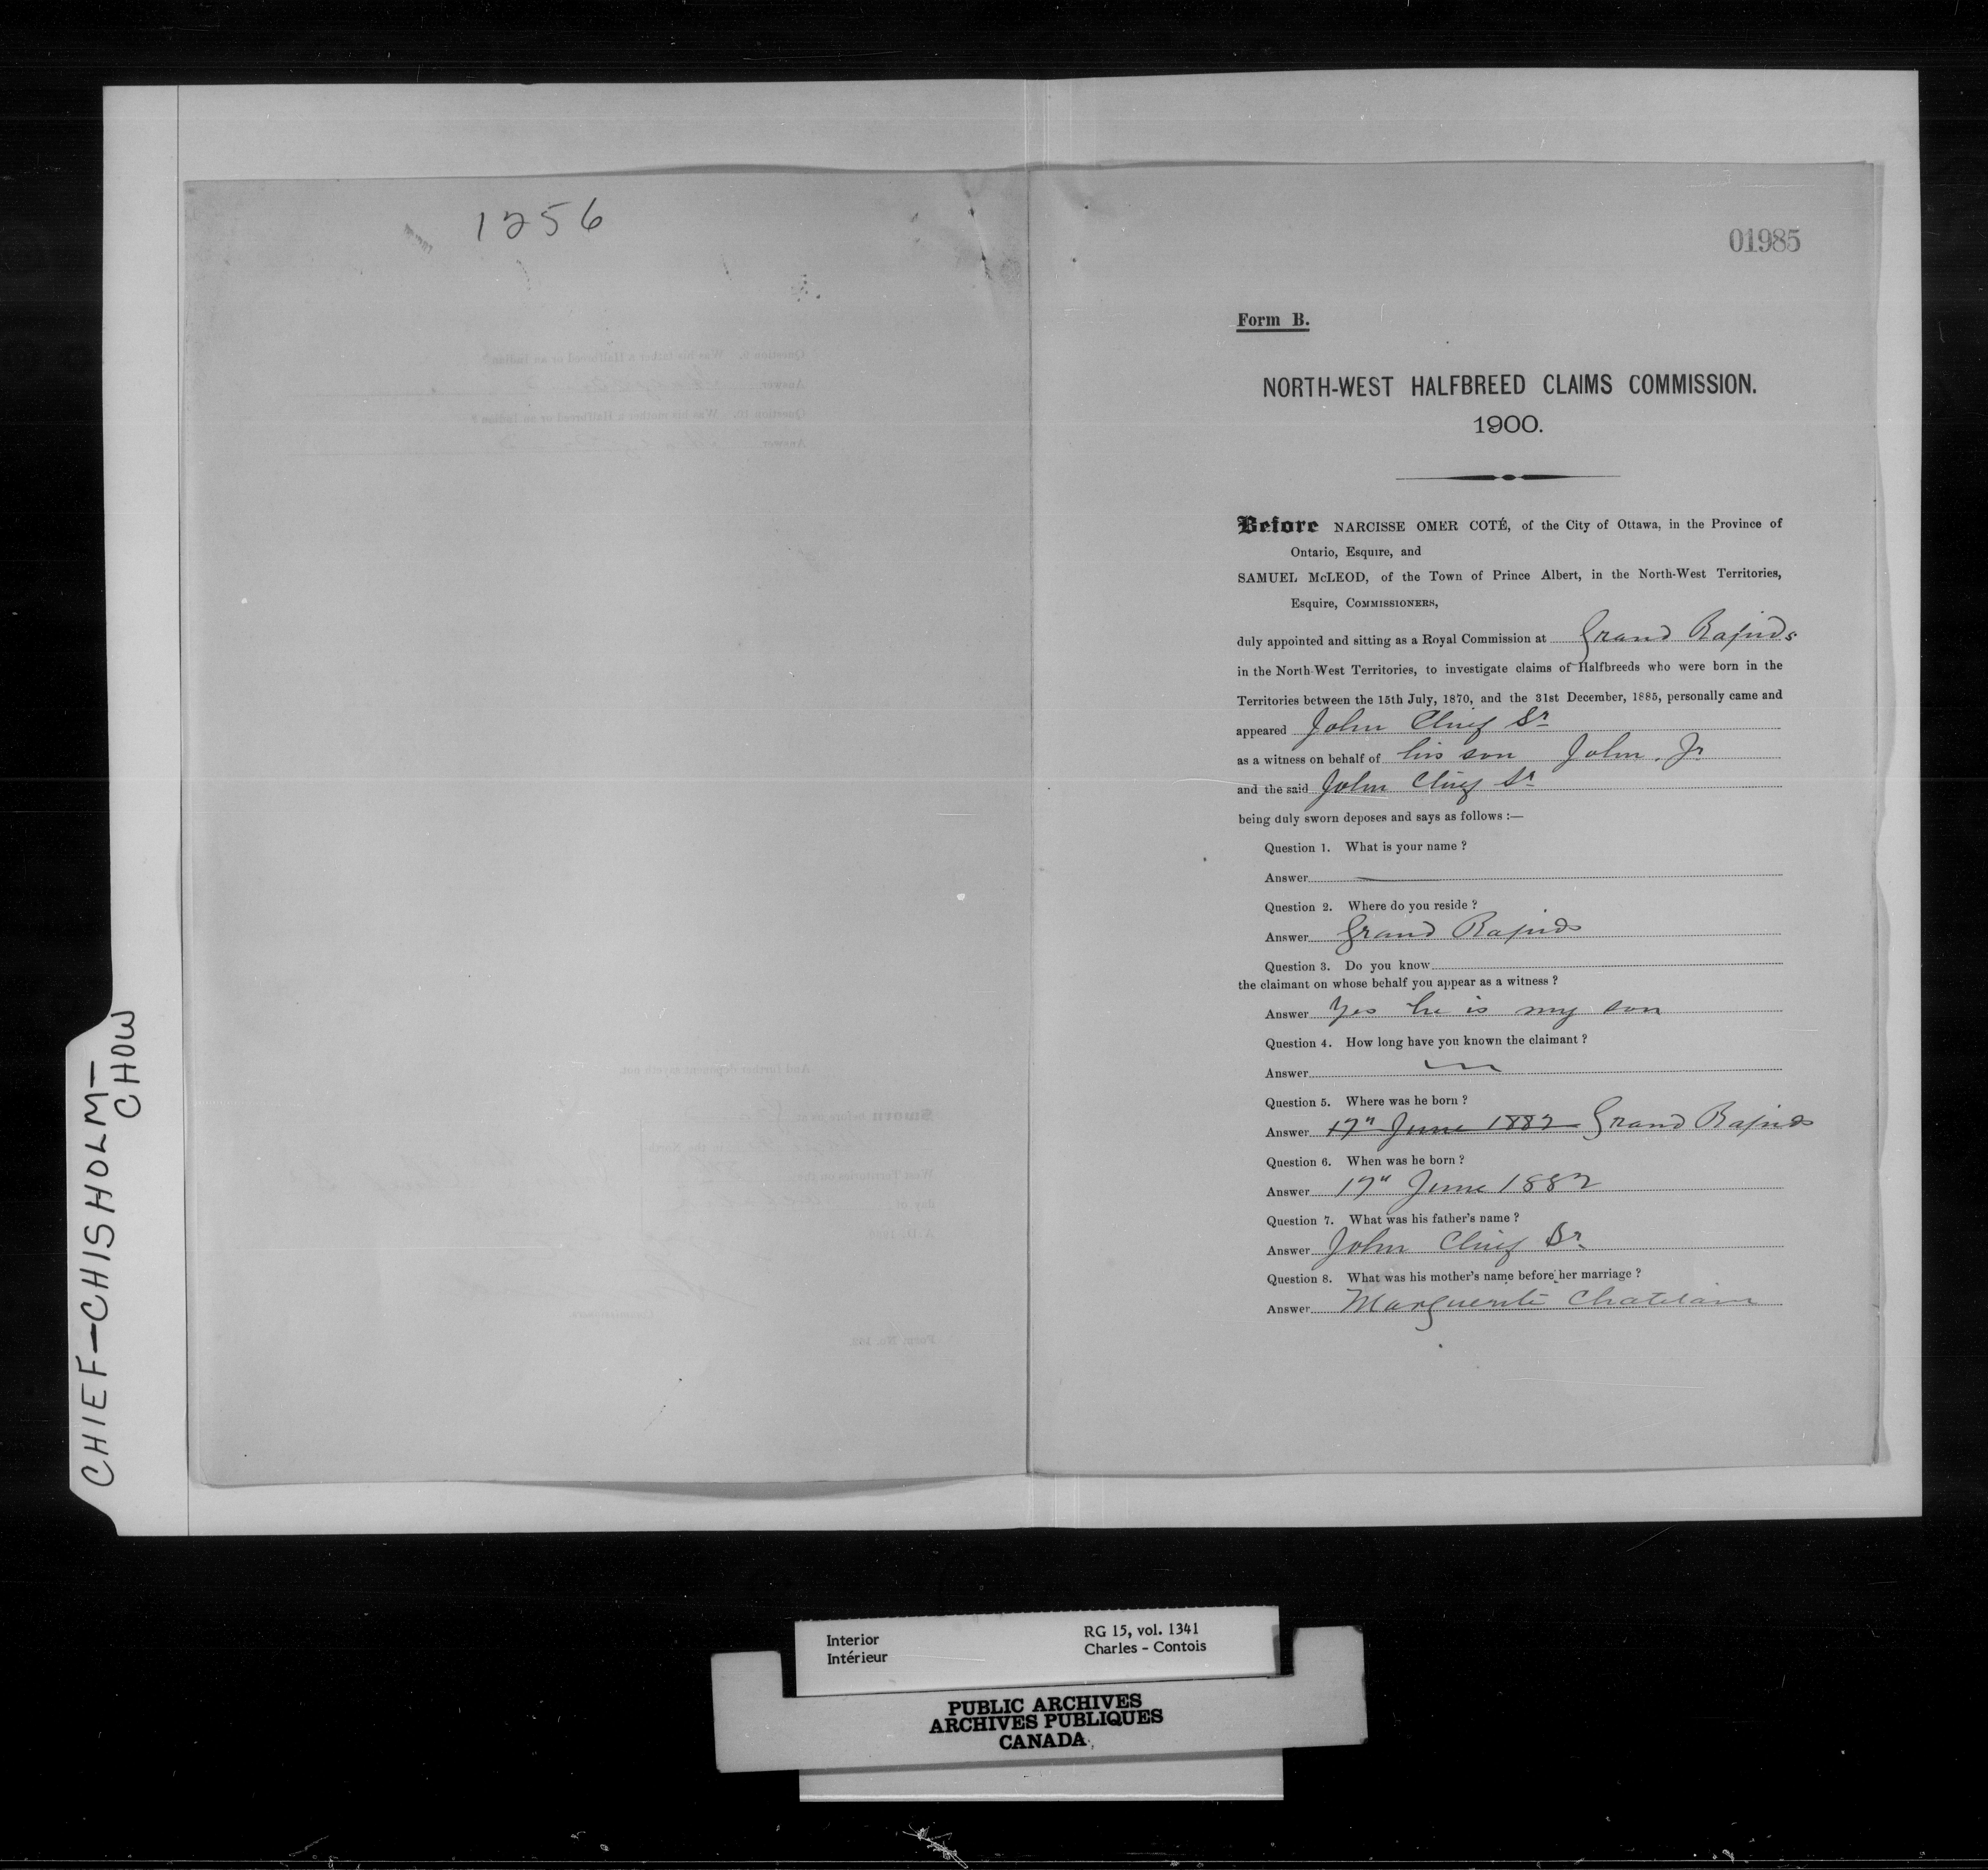 1256
01985
Form B.
NORTH-WEST HALFBREED CLAIMS COMMISSION.
1900.
Before NARCISSE OMER COTÉ, of the City of Ottawa, in the Province of
Ontario, Esquire, and
SAMUEL McLEOD, of the Town of Prince Albert, in the North-West Territories,
Esquire, COMMISSIONERS,
duly appointed and sitting as a Royal Commission at Grand Rapids
in the North-West Territories, to investigate claims of Halfbreeds who were born in the
Territories between the 15th July, 1870, and the 31st December, 1885, personally came and
appeared John Chief Sr
as a witness on behalf of his son John, Jr
and the said John Chief Sr
being duly sworn deposes and says as follows :—
Question 1. What is your name ?
Answer —
Question 2. Where do you reside ?
Answer Grand Rapids
Question 3. Do you know
the claimant on whose behalf you appear as a witness ?
Answer Yes he is my son
Question 4. How long have you known the claimant ?
Answer
Question 5. Where was he born ?
Answer 17" June 1882 Grand Rapids
Question 6. When was he born ?
Answer 17" June 1882
Question 7. What was his father's name ?
Answer John Chief Sr
Question 8. What was his mother's name before her marriage ?
Answer Marguerite Chatelain
CHIEF-CHISHOLM-
CHOW
Interior
Intérieur
RG 15, vol. 1341
Charles - Contois
PUBLIC ARCHIVES
ARCHIVES PUBLIQUES
CANADA